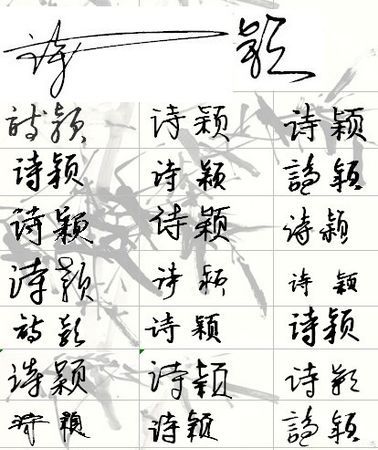 诗 颖
诗颖 诗颖 诗颖
诗颖 诗颖 詩穎
诗颖 诗颖 诗颖
诗颖 诗颖 诗颖
诗颖 诗颖 诗颖
诗颖 诗颖 诗颖
诗颖 诗颖 詩穎